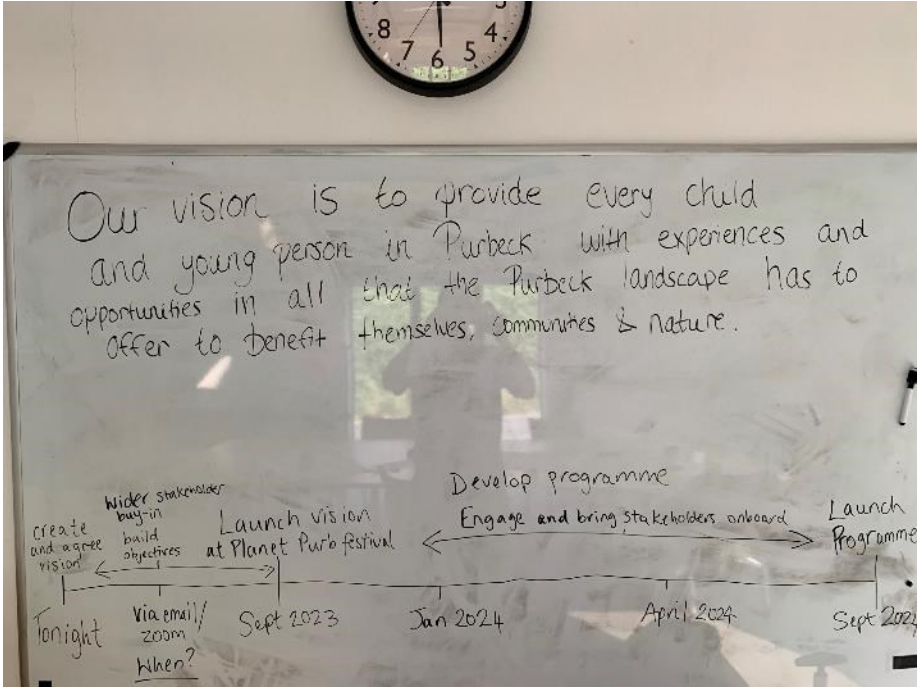 8 7 6 5 4
Our vision is to provide every child
and young person in Purbeck with experiences and
opportunities in all that the Purbeck landscape has to
offer to benefit themselves, communities & nature.
create
and agree
vision
Wider stakeholder
buy-in
build
objectives
Launch vision
at Planet Purb festival
Develop programme
Engage and bring stakeholders onboard
Launch
Programme
Tonight
Via email/
zoom
When?
Sept 2023
Jan 2024
April 2024
Sept 2024